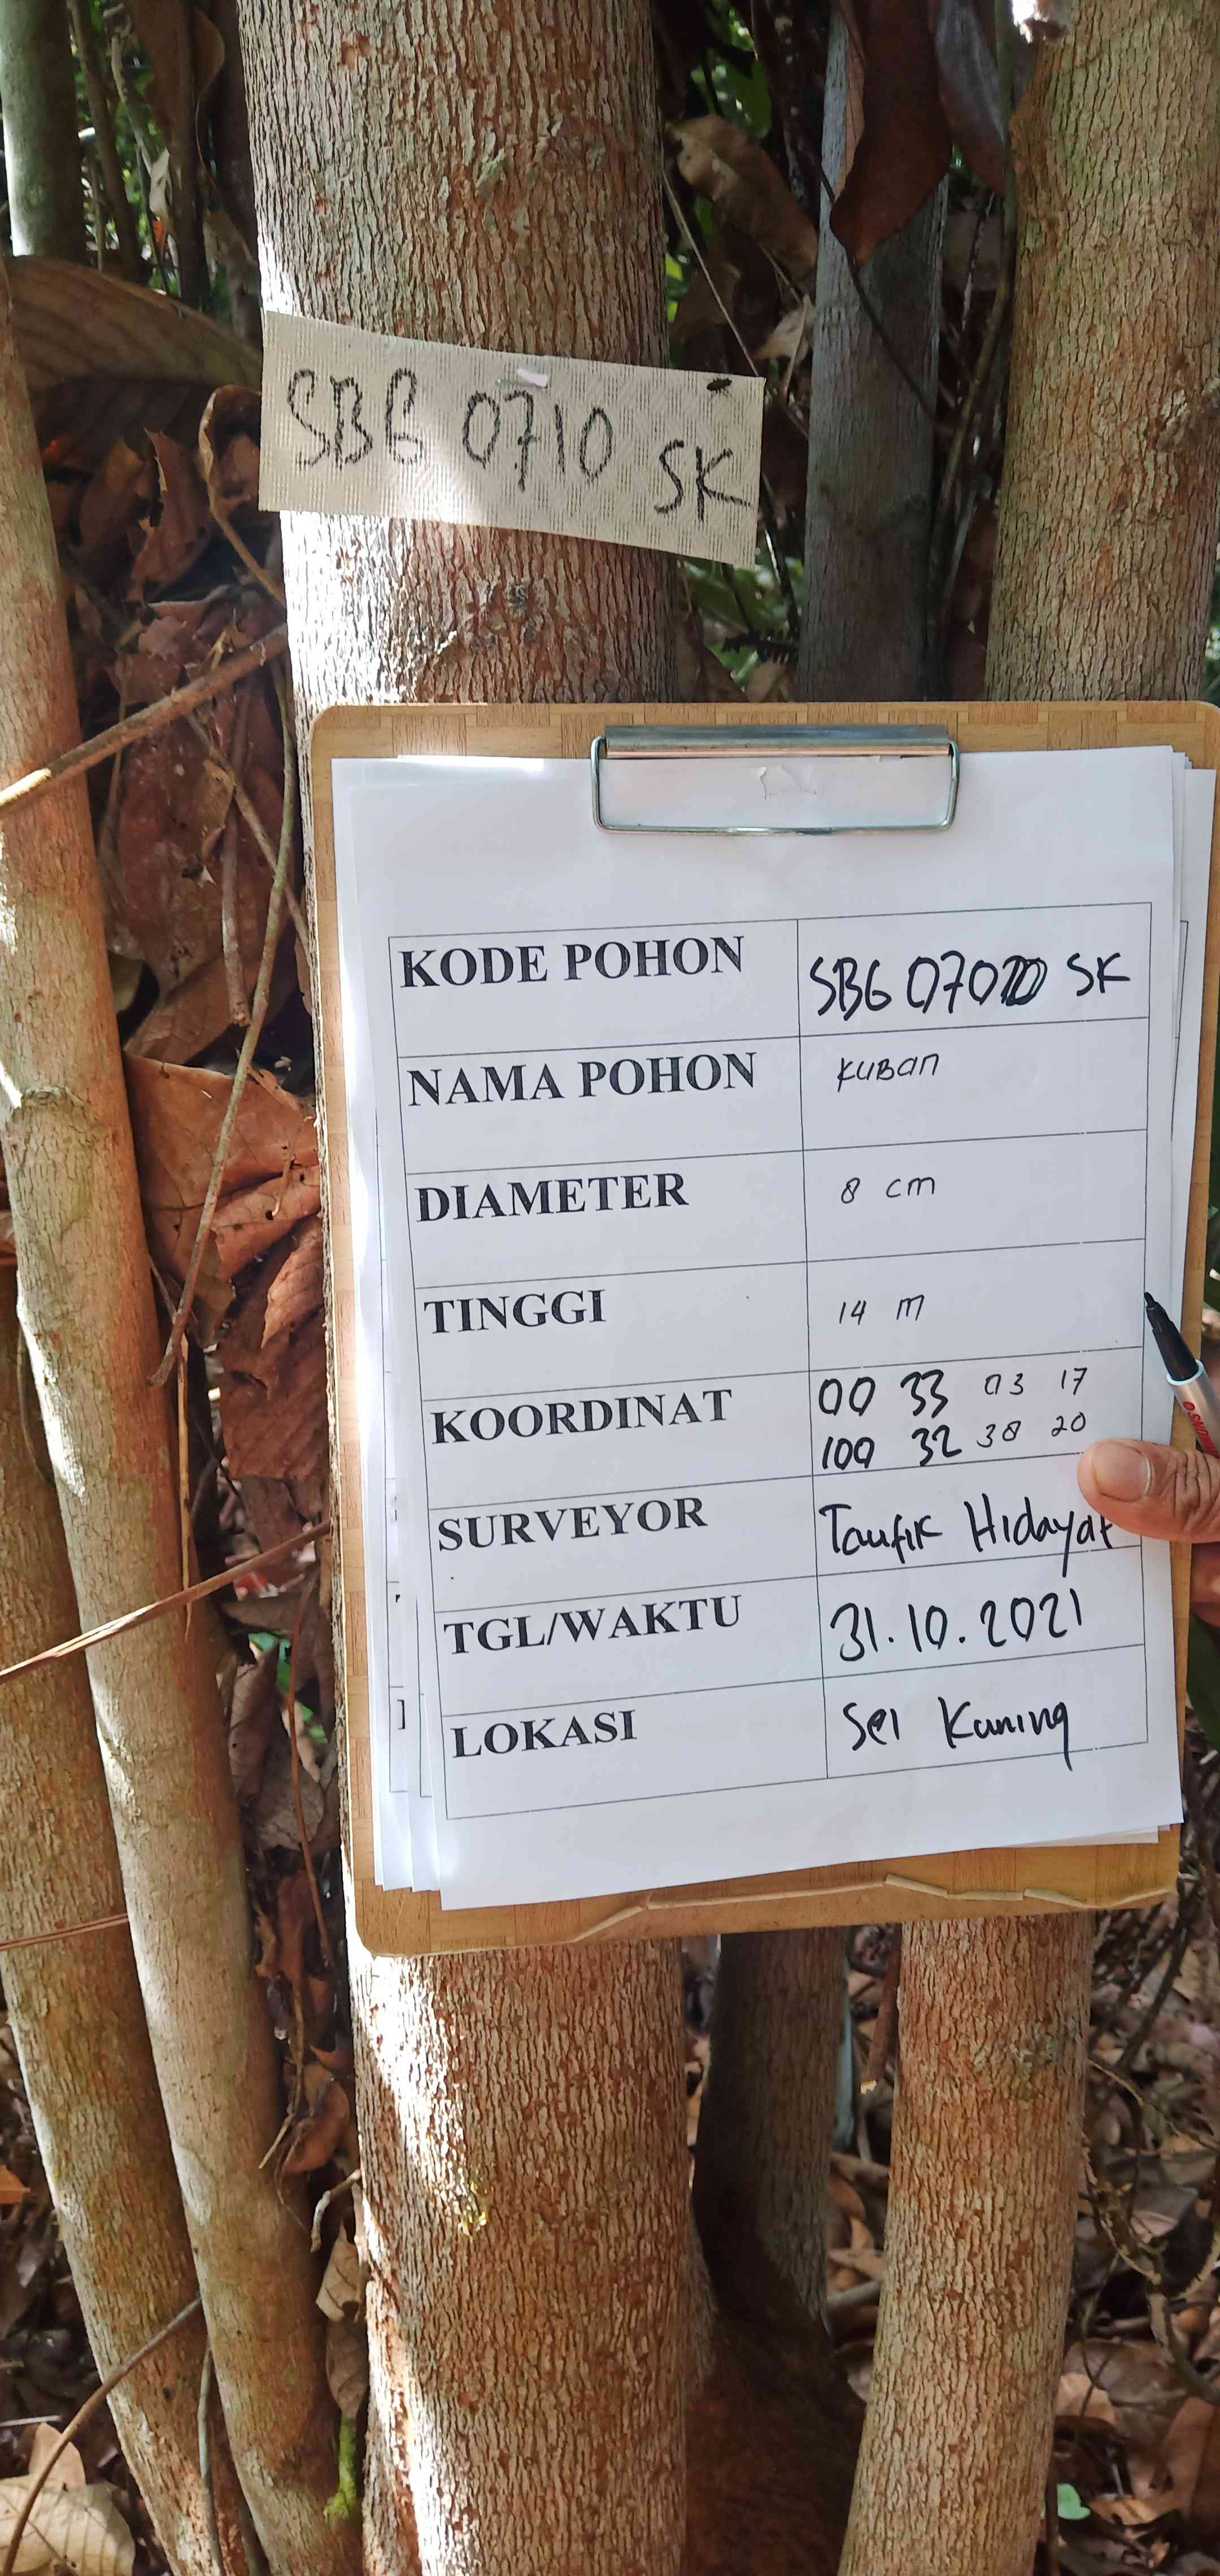 SBG 0710 SK
KODE POHON SBG 07010 SK
NAMA POHON KUBAN
DIAMETER 8 cm
TINGGI 14 m
KOORDINAT 00 33 03 17
100 32 38 20
SURVEYOR Taufik Hidayat
TGL/WAKTU 31.10.2021
LOKASI Sei Kuning